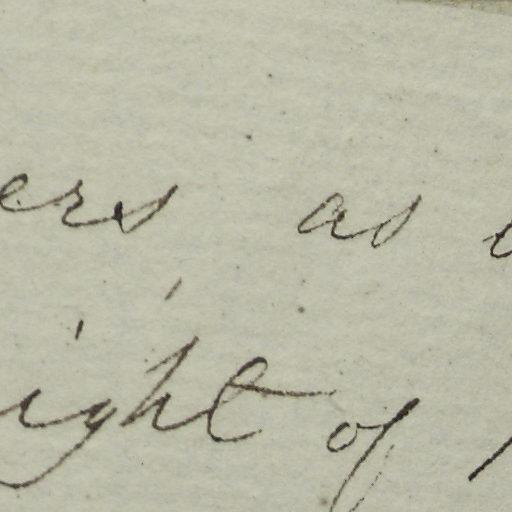 ers as
ight of